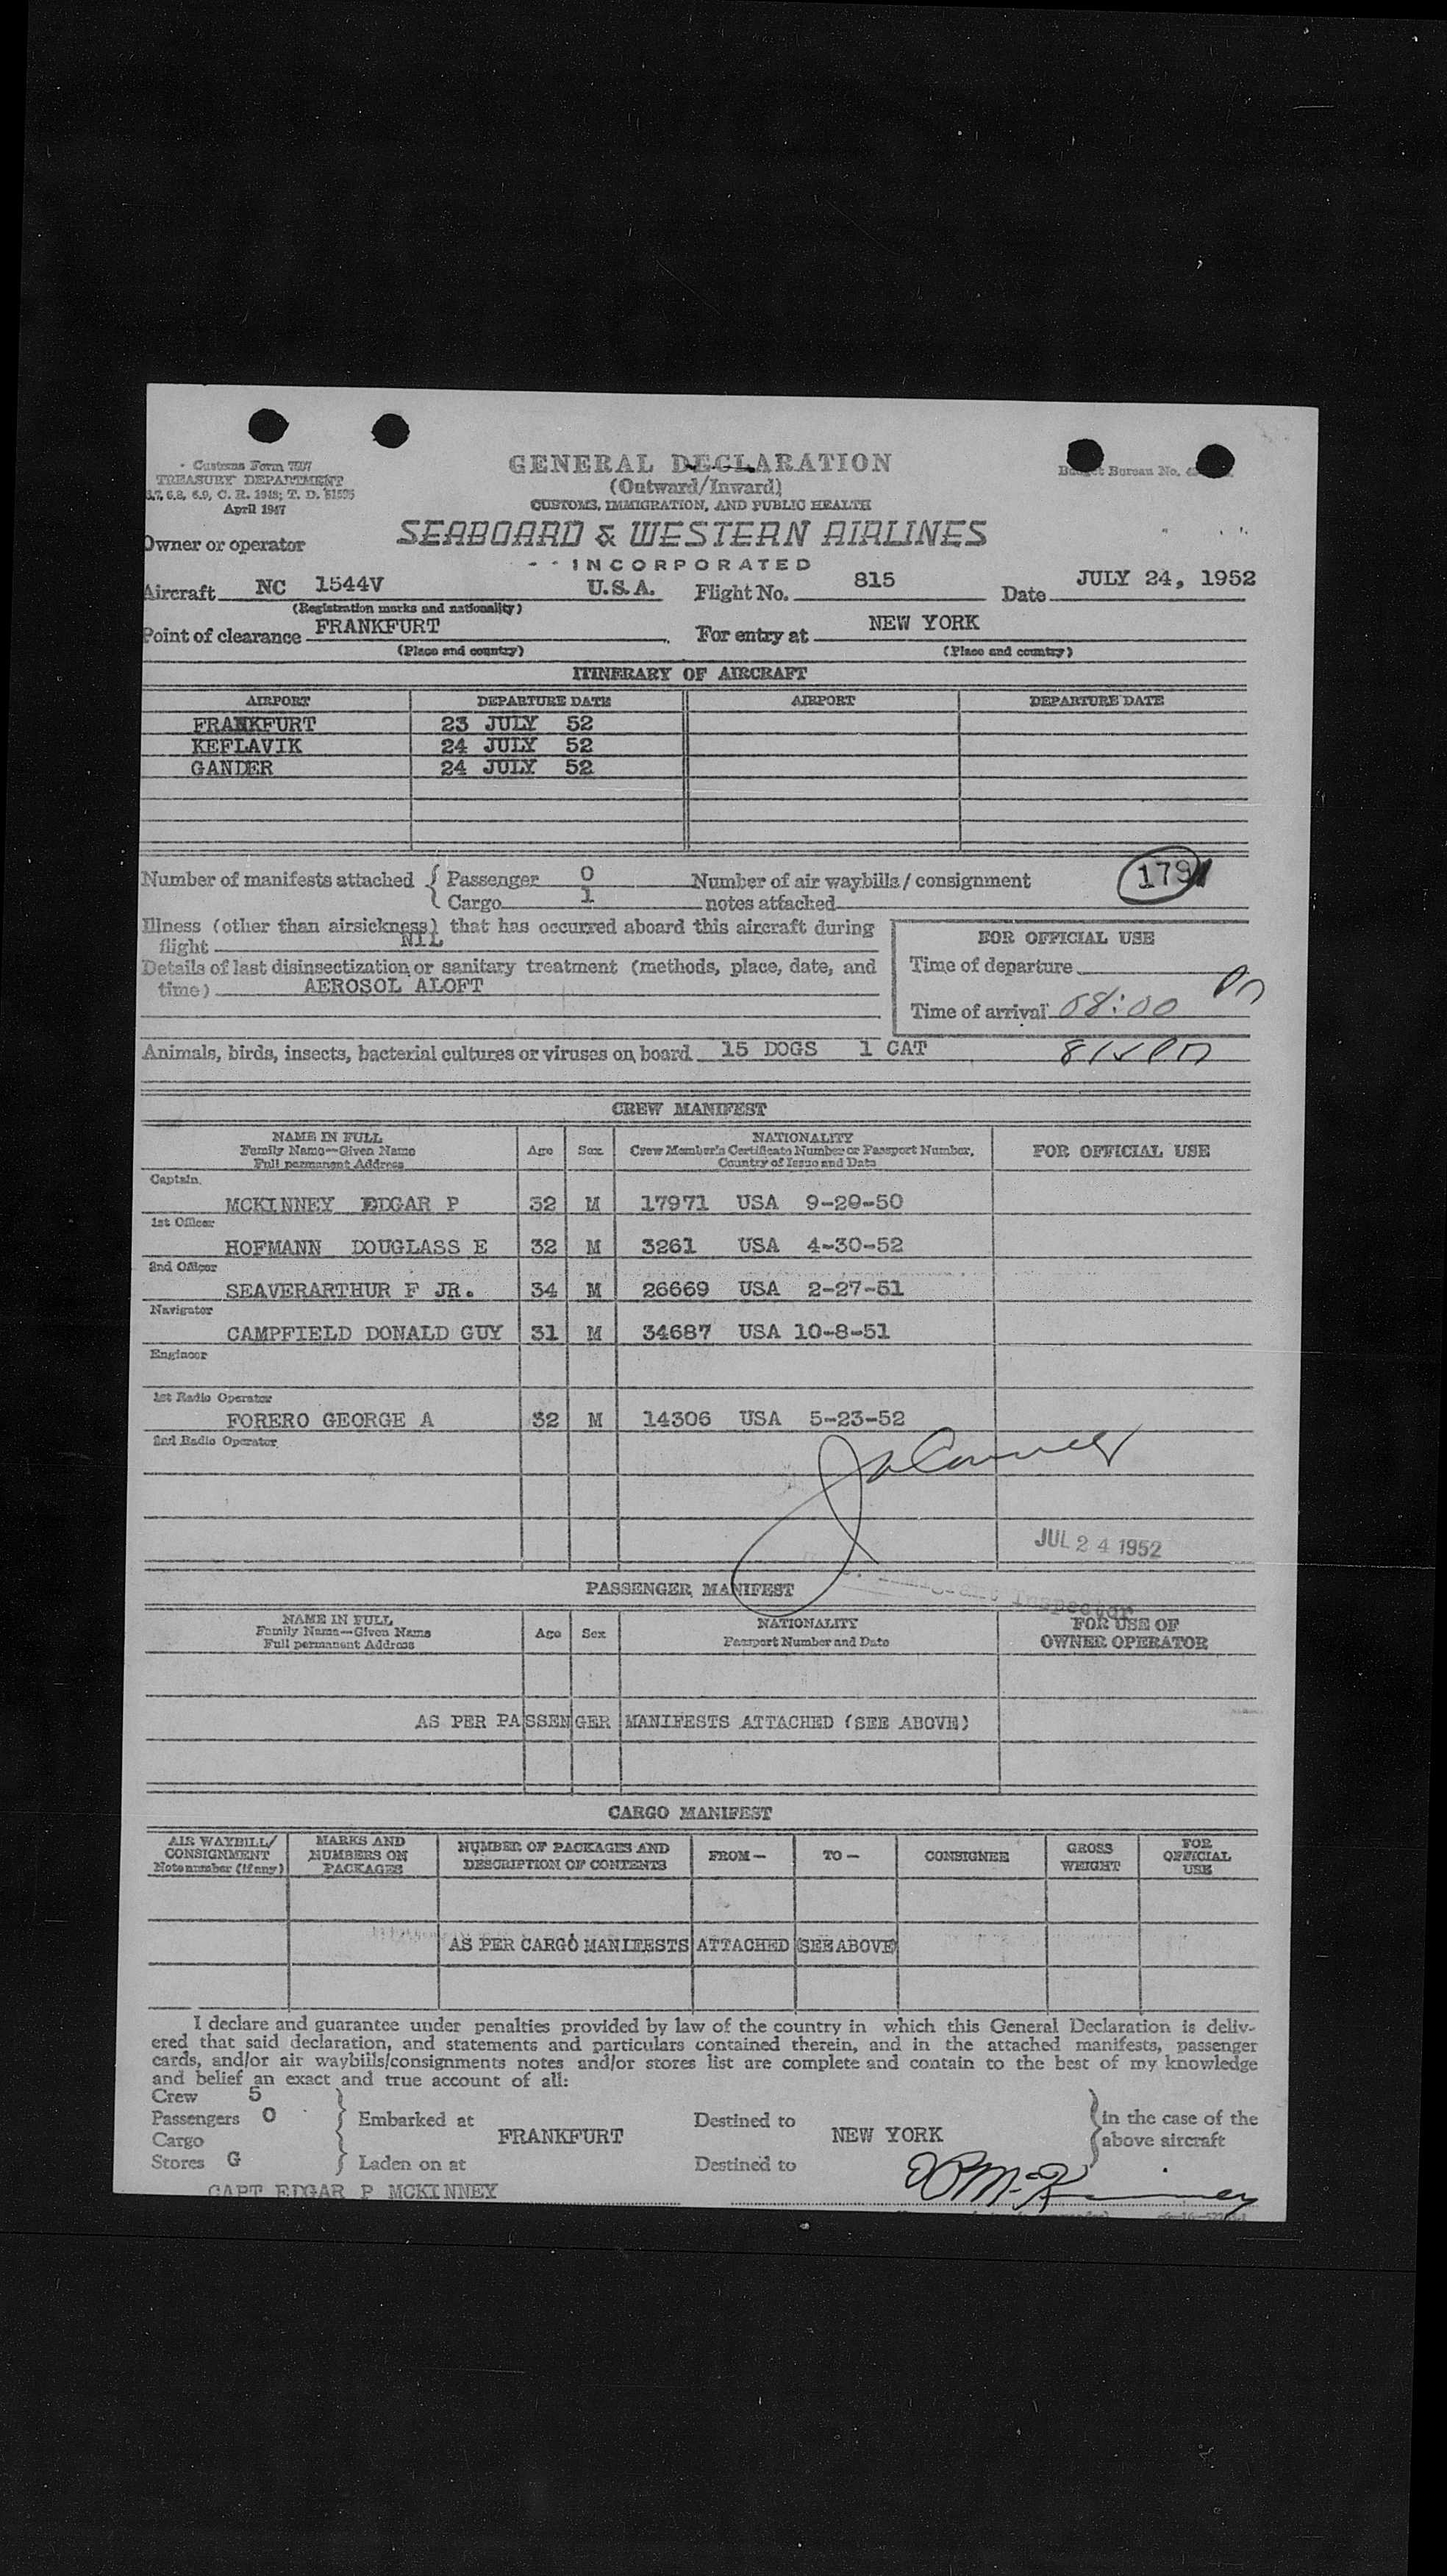 Customs Form 7507
TREASURY DEPARTMENT
6.7, 6.8, 6.9, C. R. 1943; T. D. 51595
April 1947
GENERAL DECLARATION
(Outward/Inward)
CUSTOMS, IMMIGRATION, AND PUBLIC HEALTH
Budget Bureau No.
SEABOARD & WESTERN AIRLINES
INCORPORATED
Owner or operator
Aircraft NC 1544V U.S.A. Flight No. 815 Date JULY 24, 1952
(Registration marks and nationality)
Point of clearance FRANKFURT For entry at NEW YORK
(Place and country) (Place and country)
ITINERARY OF AIRCRAFT
AIRPORT DEPARTURE DATE AIRPORT DEPARTURE DATE
FRANKFURT 23 JULY 52
KEFLAVIK 24 JULY 52
GANDER 24 JULY 52
Number of manifests attached { Passenger 0 Number of air waybills / consignment 179
Cargo 1 notes attached
Illness (other than airsickness) that has occurred aboard this aircraft during
flight NIL
Details of last disinsectization or sanitary treatment (methods, place, date, and
time) AEROSOL ALOFT
FOR OFFICIAL USE
Time of departure
Time of arrival 08:00
Animals, birds, insects, bacterial cultures or viruses on board 15 DOGS 1 CAT
CREW MANIFEST
NAME IN FULL
Family Name—Given Name
Full permanent Address
Age Sex
NATIONALITY
Crew Member's Certificate Number or Passport Number,
Country of Issue and Date
FOR OFFICIAL USE
Captain
MCKINNEY EDGAR P 32 M 17971 USA 9-20-50
1st Officer
HOFMANN DOUGLASS E 32 M 3261 USA 4-30-52
2nd Officer
SEAVERARTHUR F JR. 34 M 26669 USA 2-27-51
Navigator
CAMPFIELD DONALD GUY 31 M 34687 USA 10-8-51
Engineer
1st Radio Operator
FORERO GEORGE A 32 M 14306 USA 5-23-52
2nd Radio Operator
JUL 24 1952
Inspector
PASSENGER MANIFEST
NAME IN FULL
Family Name—Given Name
Full permanent Address
Age Sex
NATIONALITY
Passport Number and Date
FOR USE OF
OWNER OPERATOR
AS PER PASSENGER MANIFESTS ATTACHED (SEE ABOVE)
CARGO MANIFEST
AIR WAYBILL/
CONSIGNMENT
Note number (if any)
MARKS AND
NUMBERS ON
PACKAGES
NUMBER OF PACKAGES AND
DESCRIPTION OF CONTENTS
FROM— TO— CONSIGNEE
GROSS
WEIGHT
FOR
OFFICIAL
USE
AS PER CARGO MANIFESTS ATTACHED (SEE ABOVE)
I declare and guarantee under penalties provided by law of the country in which this General Declaration is deliv-
ered that said declaration, and statements and particulars contained therein, and in the attached manifests, passenger
cards, and/or air waybills/consignments notes and/or stores list are complete and contain to the best of my knowledge
and belief an exact and true account of all:
Crew 5
Passengers 0 } Embarked at FRANKFURT Destined to NEW YORK } in the case of the
Cargo above aircraft
Stores G } Laden on at Destined to
CAPT EDGAR P MCKINNEY EPMcKinney